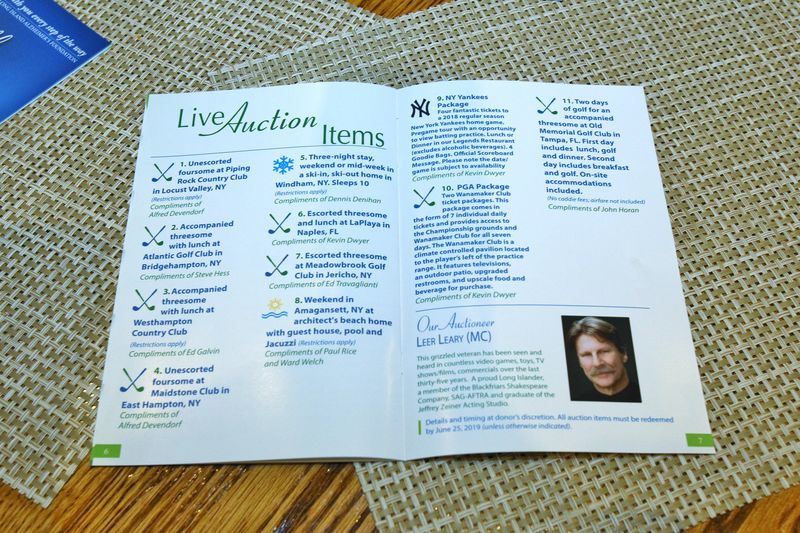 with you every step of the way
LONG ISLAND ALZHEIMER'S FOUNDATION
Live Auction
Items
1. Unescorted
foursome at Piping
Rock Country Club
in Locust Valley, NY
(Restrictions apply)
Compliments of
Alfred Devendorf
2. Accompanied
threesome
with lunch at
Atlantic Golf Club in
Bridgehampton, NY
Compliments of Steve Hess
3. Accompanied
threesome
with lunch at
Westhampton
Country Club
(Restrictions apply)
Compliments of Ed Galvin
4. Unescorted
foursome at
Maidstone Club in
East Hampton, NY
Compliments of
Alfred Devendorf
5. Three-night stay,
weekend or mid-week in
a ski-in, ski-out home in
Windham, NY. Sleeps 10
(Restrictions apply)
Compliments of Dennis Denihan
6. Escorted threesome
and lunch at LaPlaya in
Naples, FL
Compliments of Kevin Dwyer
7. Escorted threesome
at Meadowbrook Golf
Club in Jericho, NY
Compliments of Ed Travaglianti
8. Weekend in
Amagansett, NY at
architect's beach home
with guest house, pool and
Jacuzzi (Restrictions apply)
Compliments of Paul Rice
and Ward Welch
6
NY
9. NY Yankees
Package
Four fantastic tickets to
a 2018 regular season
New York Yankees home game.
Pregame tour with an opportunity
to view batting practice. Lunch or
Dinner in our Legends Restaurant
(excludes alcoholic beverages). 4
Goodie Bags. Official Scoreboard
Message. Please note the date/
game is subject to availability
Compliments of Kevin Dwyer
10. PGA Package
Two Wanamaker Club
ticket packages. This
package comes in
the form of 7 individual daily
tickets and provides access to
the Championship grounds and
Wanamaker Club for all seven
days. The Wanamaker Club is a
climate controlled pavilion located
to the player's left of the practice
range. It features televisions,
an outdoor patio, upgraded
restrooms, and upscale food and
beverage for purchase.
Compliments of Kevin Dwyer
11. Two days
of golf for an
accompanied
threesome at Old
Memorial Golf Club in
Tampa, FL. First day
includes lunch, golf
and dinner. Second
day includes breakfast
and golf. On-site
accommodations
included.
(No caddie fees; airfare not included)
Compliments of John Horan
Our Auctioneer
LEER LEARY (MC)
This grizzled veteran has been seen and
heard in countless video games, toys, TV
shows/films, commercials over the last
thirty-five years. A proud Long Islander,
a member of the Blackfriars Shakespeare
Company, SAG-AFTRA and graduate of the
Jeffrey Zeiner Acting Studio.
Details and timing at donor's discretion. All auction items must be redeemed
by June 25, 2019 (unless otherwise indicated).
7